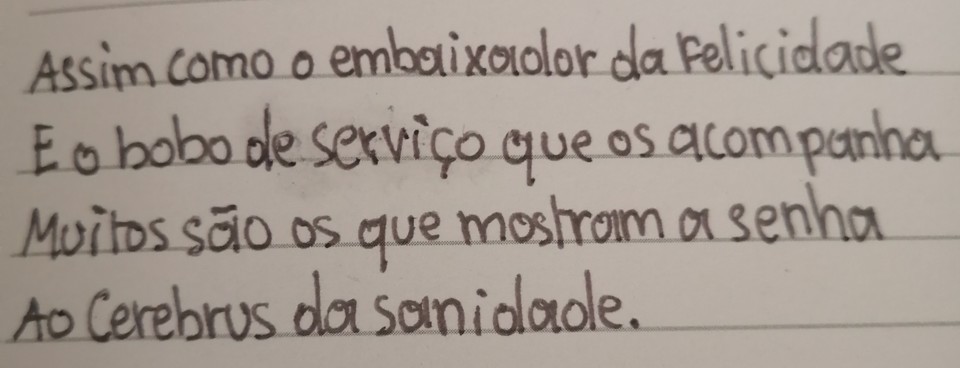 Assim como o embaixador da Felicidade
E o bobo de serviço que os acompanha
Muitos são os que mostram a senha
Ao Cerebrus da sanidade.